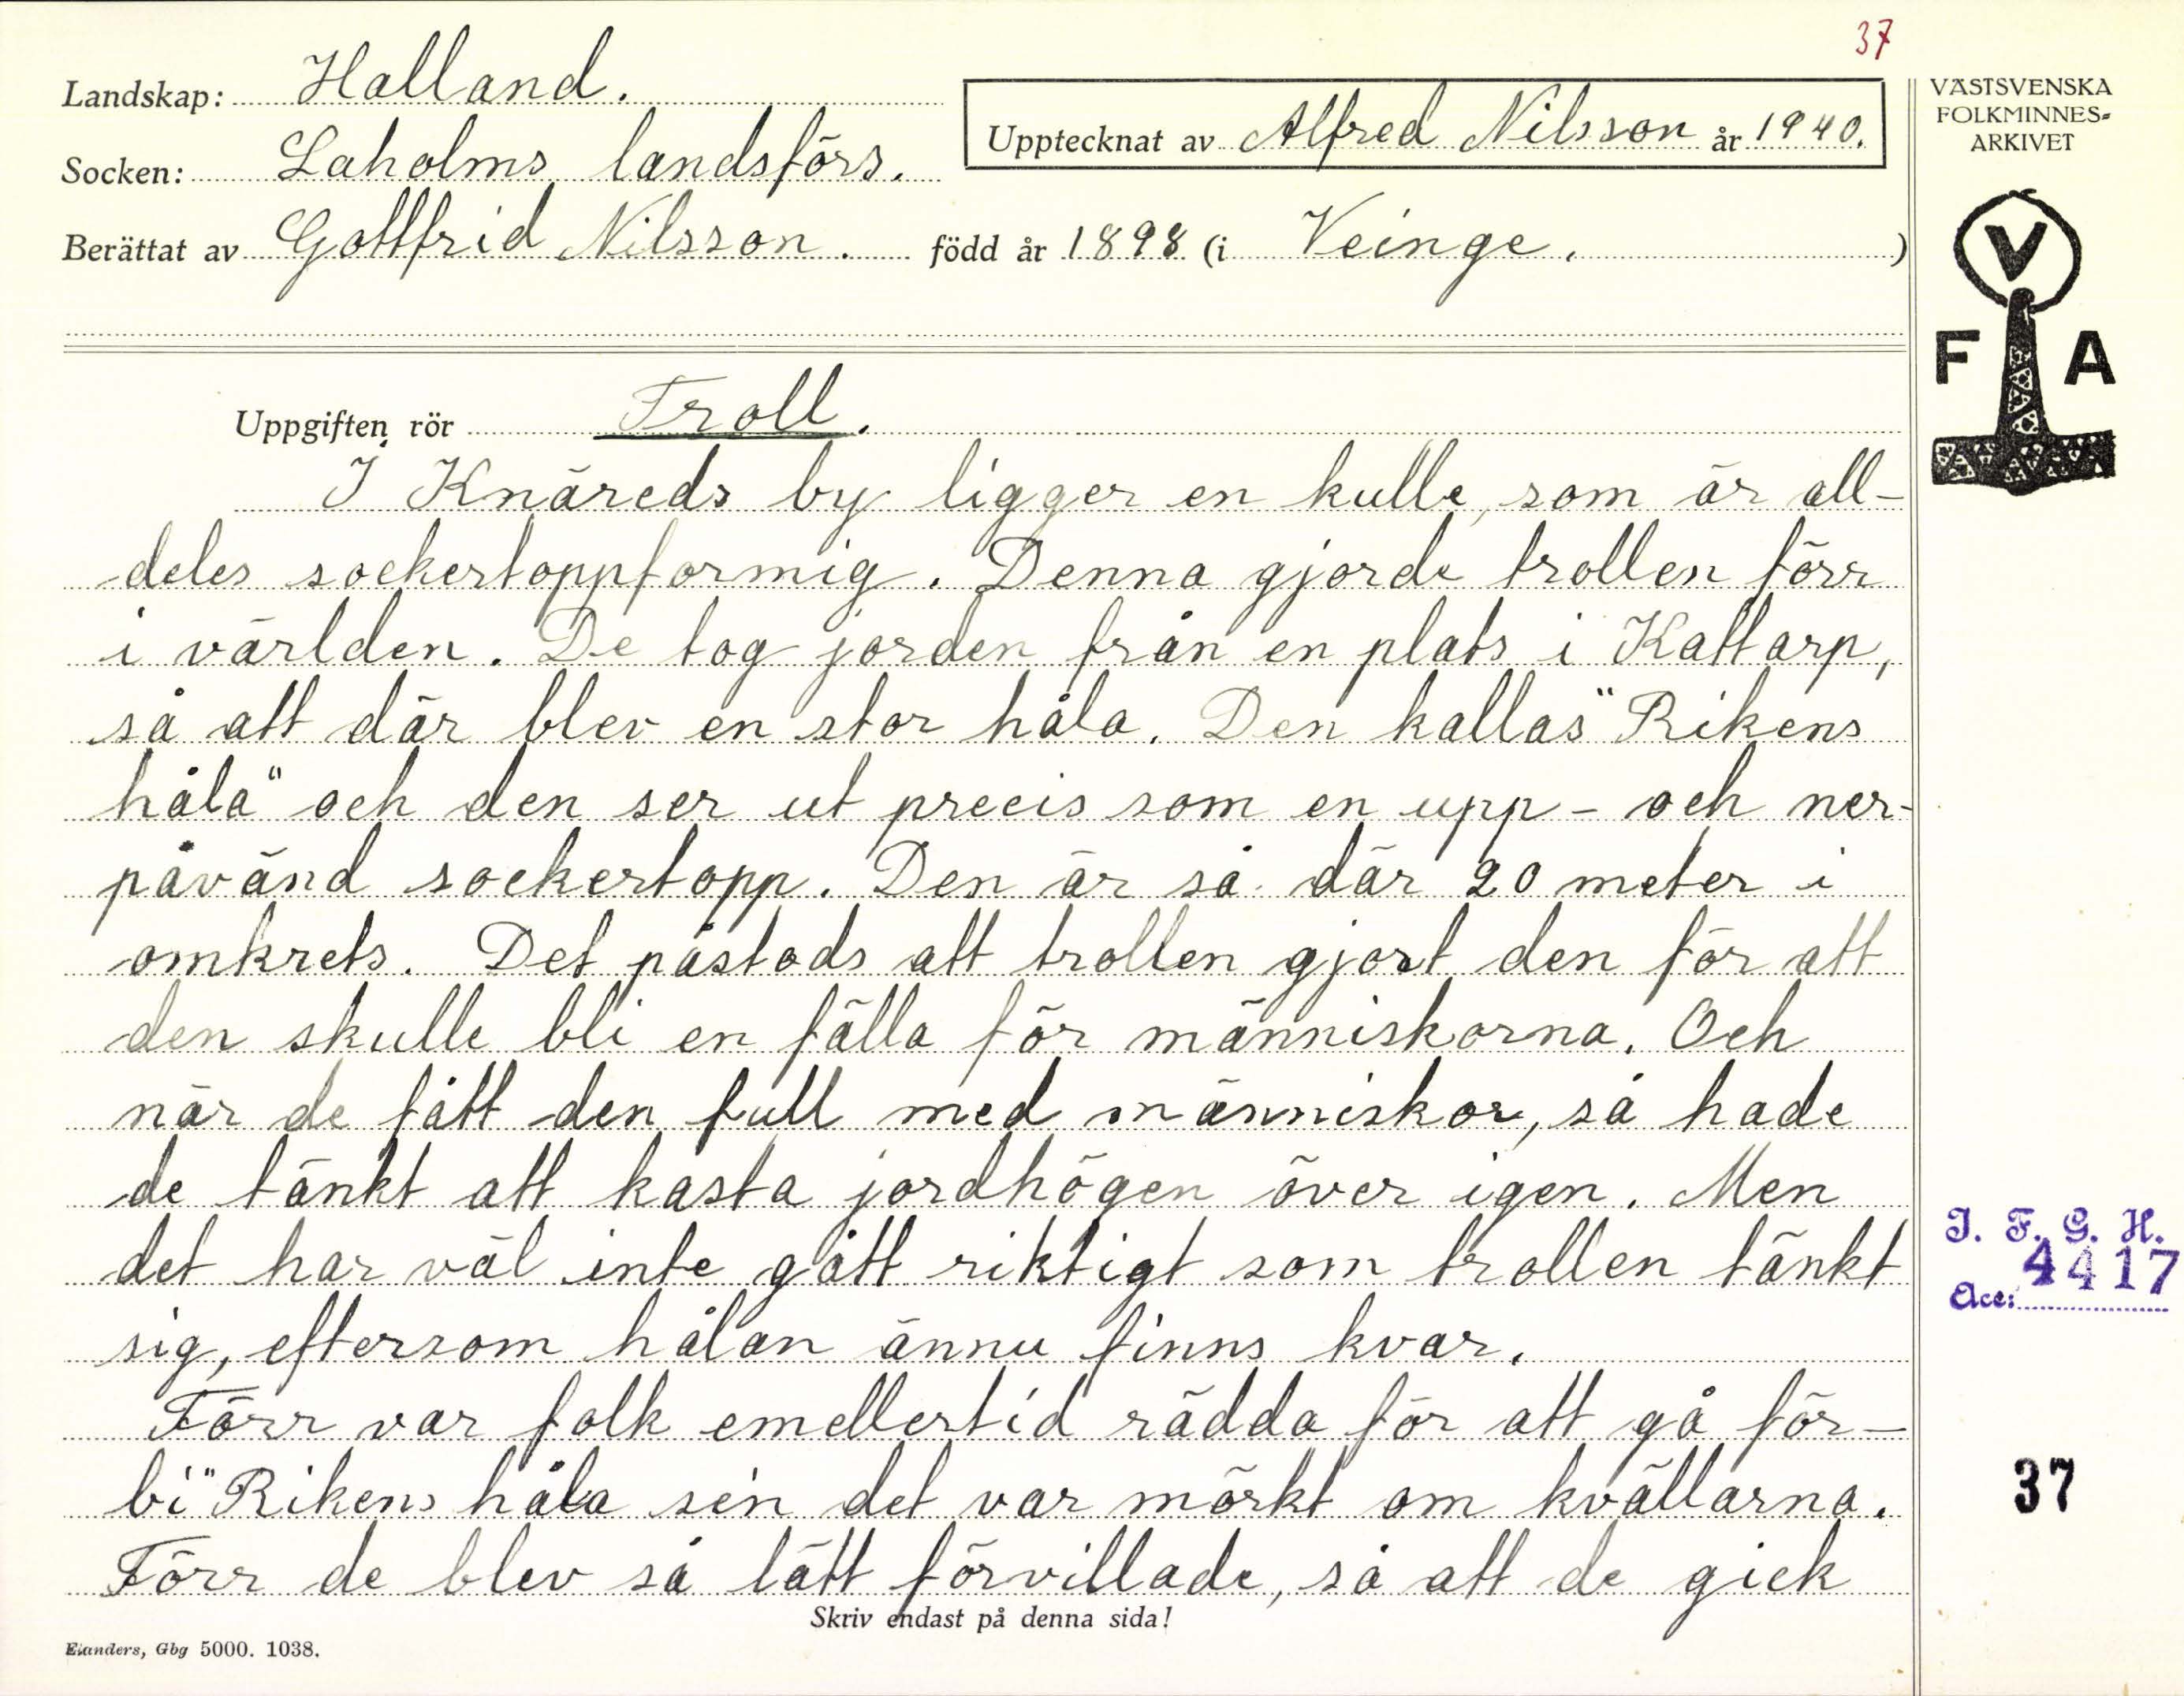 37
Landskap: Halland.
Upptecknat av Alfred Nilsson år 1940.
Socken: Laholms landsförs.
Berättat av Gottfrid Nilsson. född år 1898 (i Veinge. )
Uppgiften rör Troll.
I Knäreds by ligger en kulle, som är all-
deles sockertoppformig. Denna gjorde trollen förr
i världen. De tog jorden från en plats i Kattarp,
så att där blev en stor håla. Den kallas "Rikens
håla" och den ser ut precis som en upp- och ner-
påvänd sockertopp. Den är så där 20 meter i
omkrets. Det påstods att trollen gjort den för att
den skulle bli en fälla för människorna. Och
när de fått den full med människor, så hade
de tänkt att kasta jordhögen över igen. Men
det har väl inte gått riktigt som trollen tänkt
sig, eftersom hålan ännu finns kvar.
Förr var folk emellertid rädda för att gå för-
bi "Rikens håla sen det var mörkt om kvällarna.
Förr de blev så lätt förvillade, så att de gick
Skriv endast på denna sida!
Elanders, Gbg 5000. 1038.
VÄSTSVENSKA
FOLKMINNES-
ARKIVET
V
F A
I. F. G. H.
4417
Acc:
37